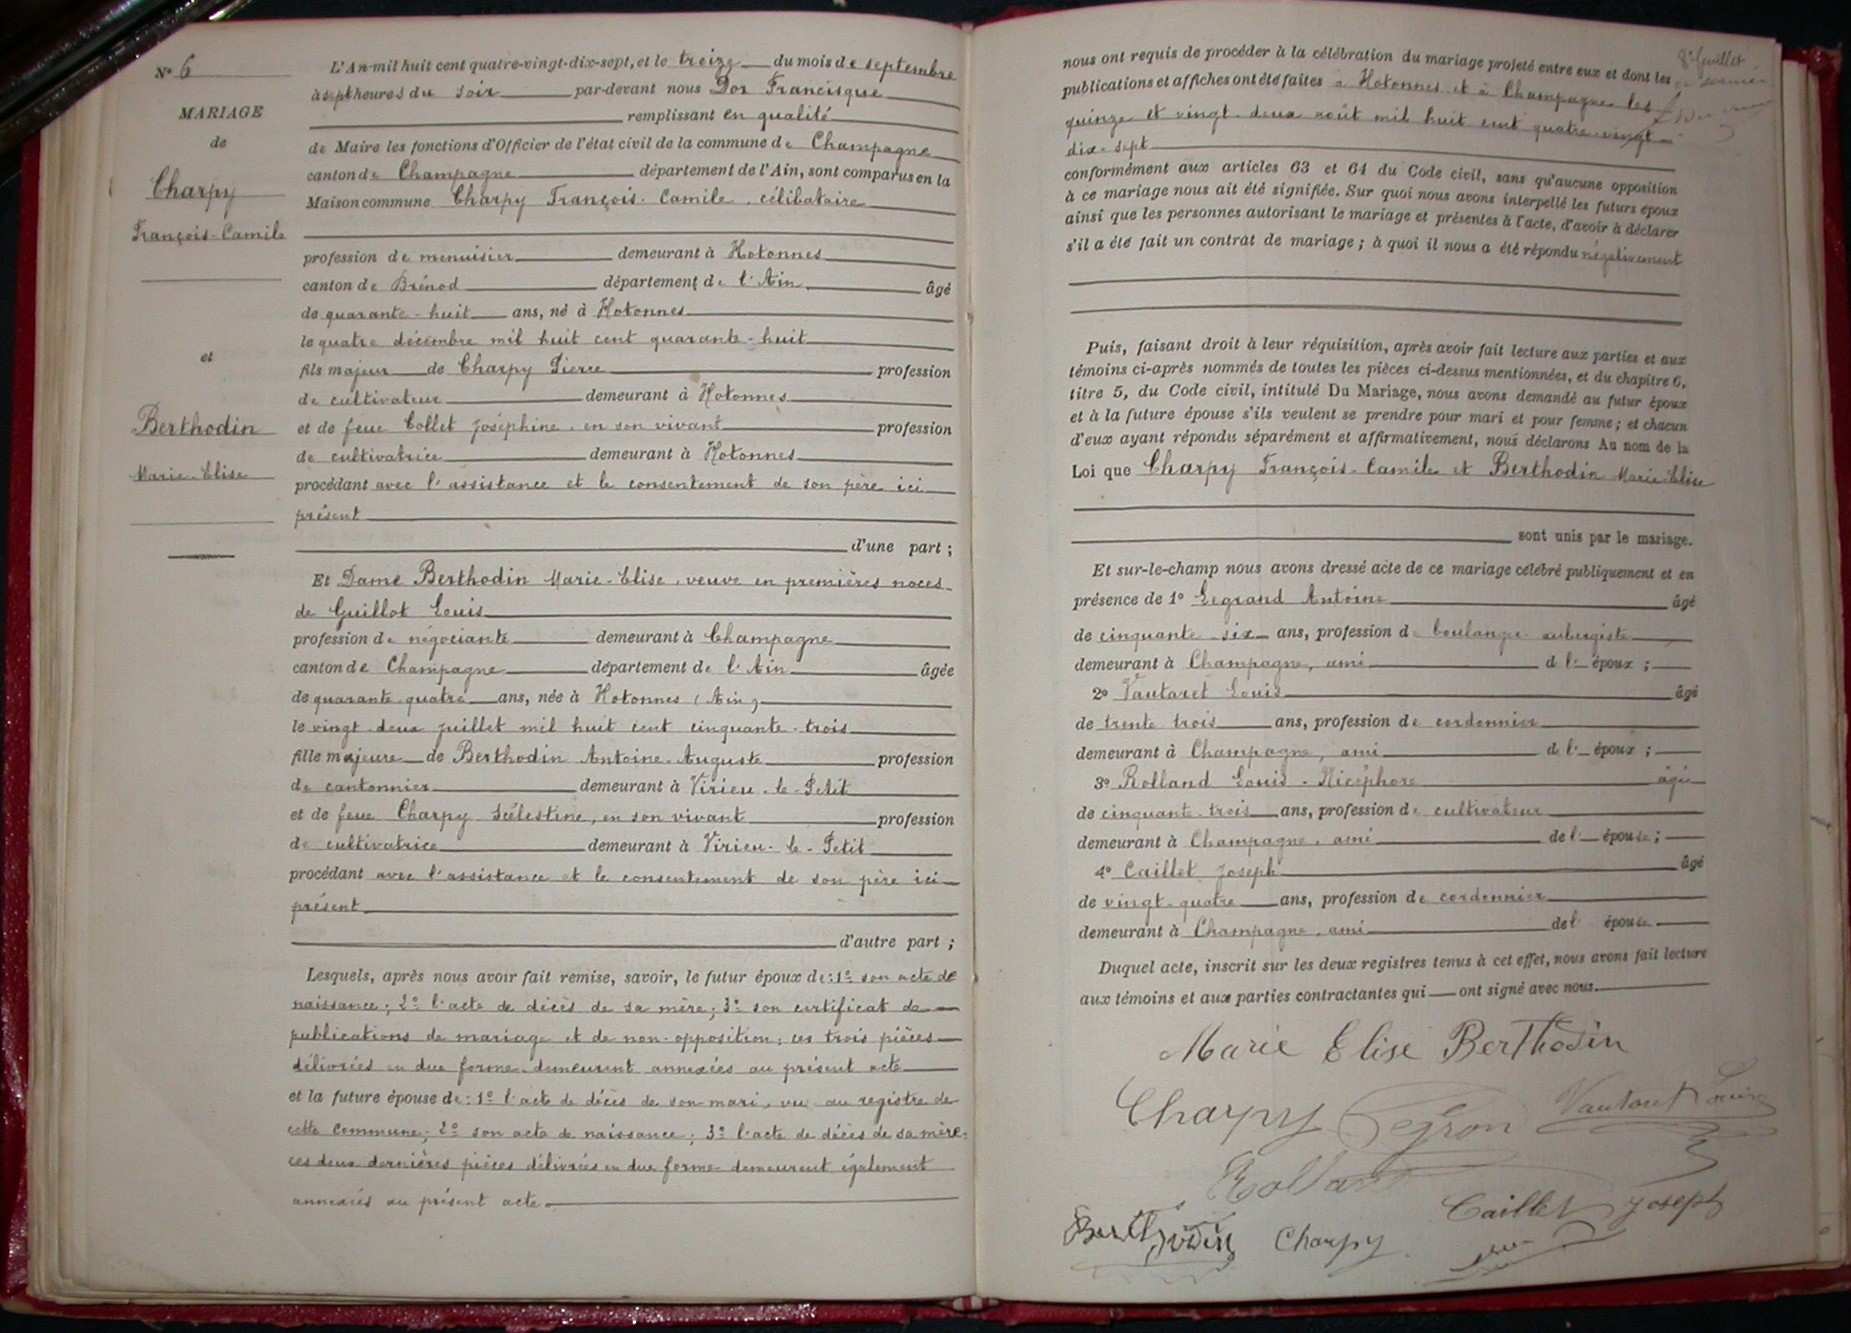 N° 6
MARIAGE
de
Charpy
François-Camile
et
Berthodin
Marie-Elise
L'An mil huit cent quatre-vingt-dix-sept, et le treize du mois de septembre
à sept heures du soir par-devant nous Dor Francisque
remplissant en qualité
de Maire les fonctions d'Officier de l'état civil de la commune de Champagne
canton de Champagne département de l'Ain, sont comparus en la
Maison commune Charpy François-Camile, célibataire
profession de menuisier demeurant à Hotonnes
canton de Brénod département de l'Ain âgé
de quarante-huit ans, né à Hotonnes
le quatre décembre mil huit cent quarante-huit
fils majeur de Charpy Pierre profession
de cultivateur demeurant à Hotonnes
et de feue Collet Joséphine, en son vivant profession
de cultivatrice demeurant à Hotonnes
procédant avec l'assistance et le consentement de son père ici
présent
d'une part ;
Et Dame Berthodin Marie-Elise, veuve en premières noces
de Guillot Louis
profession de négociante demeurant à Champagne
canton de Champagne département de l'Ain âgée
de quarante-quatre ans, née à Hotonnes (Ain)
le vingt-deux juillet mil huit cent cinquante-trois
fille majeure de Berthodin Antoine-Auguste profession
de cantonnier demeurant à Virieu-le-Petit
et de feue Charpy Célestine, en son vivant profession
de cultivatrice demeurant à Virieu-le-Petit
procédant avec l'assistance et le consentement de son père ici
présent
d'autre part ;
Lesquels, après nous avoir fait remise, savoir, le futur époux de : 1° son acte de
naissance ; 2° l'acte de décès de sa mère ; 3° son certificat de
publications de mariage et de non-opposition ; ces trois pièces
délivrées en due forme demeurent annexées au présent acte
et la future épouse de : 1° l'acte de décès de son mari, vu au registre de
cette commune ; 2° son acte de naissance ; 3° l'acte de décès de sa mère ;
ces deux dernières pièces délivrées en due forme demeurent également
annexées au présent acte.
nous ont requis de procéder à la célébration du mariage projeté entre eux et dont les
publications et affiches ont été faites à Hotonnes et à Champagne les
quinze et vingt-deux août mil huit cent quatre-vingt-
dix-sept
conformément aux articles 63 et 64 du Code civil, sans qu'aucune opposition
à ce mariage nous ait été signifiée. Sur quoi nous avons interpellé les futurs époux
ainsi que les personnes autorisant le mariage et présentes à l'acte, d'avoir à déclarer
s'il a été fait un contrat de mariage ; à quoi il nous a été répondu négativement
Puis, faisant droit à leur réquisition, après avoir fait lecture aux parties et aux
témoins ci-après nommés de toutes les pièces ci-dessus mentionnées, et du chapitre 6,
titre 5, du Code civil, intitulé Du Mariage, nous avons demandé au futur époux
et à la future épouse s'ils veulent se prendre pour mari et pour femme ; et chacun
d'eux ayant répondu séparément et affirmativement, nous déclarons Au nom de la
Loi que Charpy François-Camile et Berthodin Marie-Elise
sont unis par le mariage.
Et sur-le-champ nous avons dressé acte de ce mariage célébré publiquement et en
présence de 1° Legrand Antoine âgé
de cinquante-six ans, profession de boulanger aubergiste
demeurant à Champagne, ami de l'époux ;
2° Vautaret Louis âgé
de trente trois ans, profession de cordonnier
demeurant à Champagne, ami de l'époux ;
3° Rolland Louis-Nicéphore âgé
de cinquante-trois ans, profession de cultivateur
demeurant à Champagne, ami de l'épouse ;
4° Caillet Joseph âgé
de vingt-quatre ans, profession de cordonnier
demeurant à Champagne, ami de l'épouse
Duquel acte, inscrit sur les deux registres tenus à cet effet, nous avons fait lecture
aux témoins et aux parties contractantes qui ont signé avec nous.
Marie Elise Berthodin
Charpy
Rolland
Caillet Joseph
Berthodin Charpy